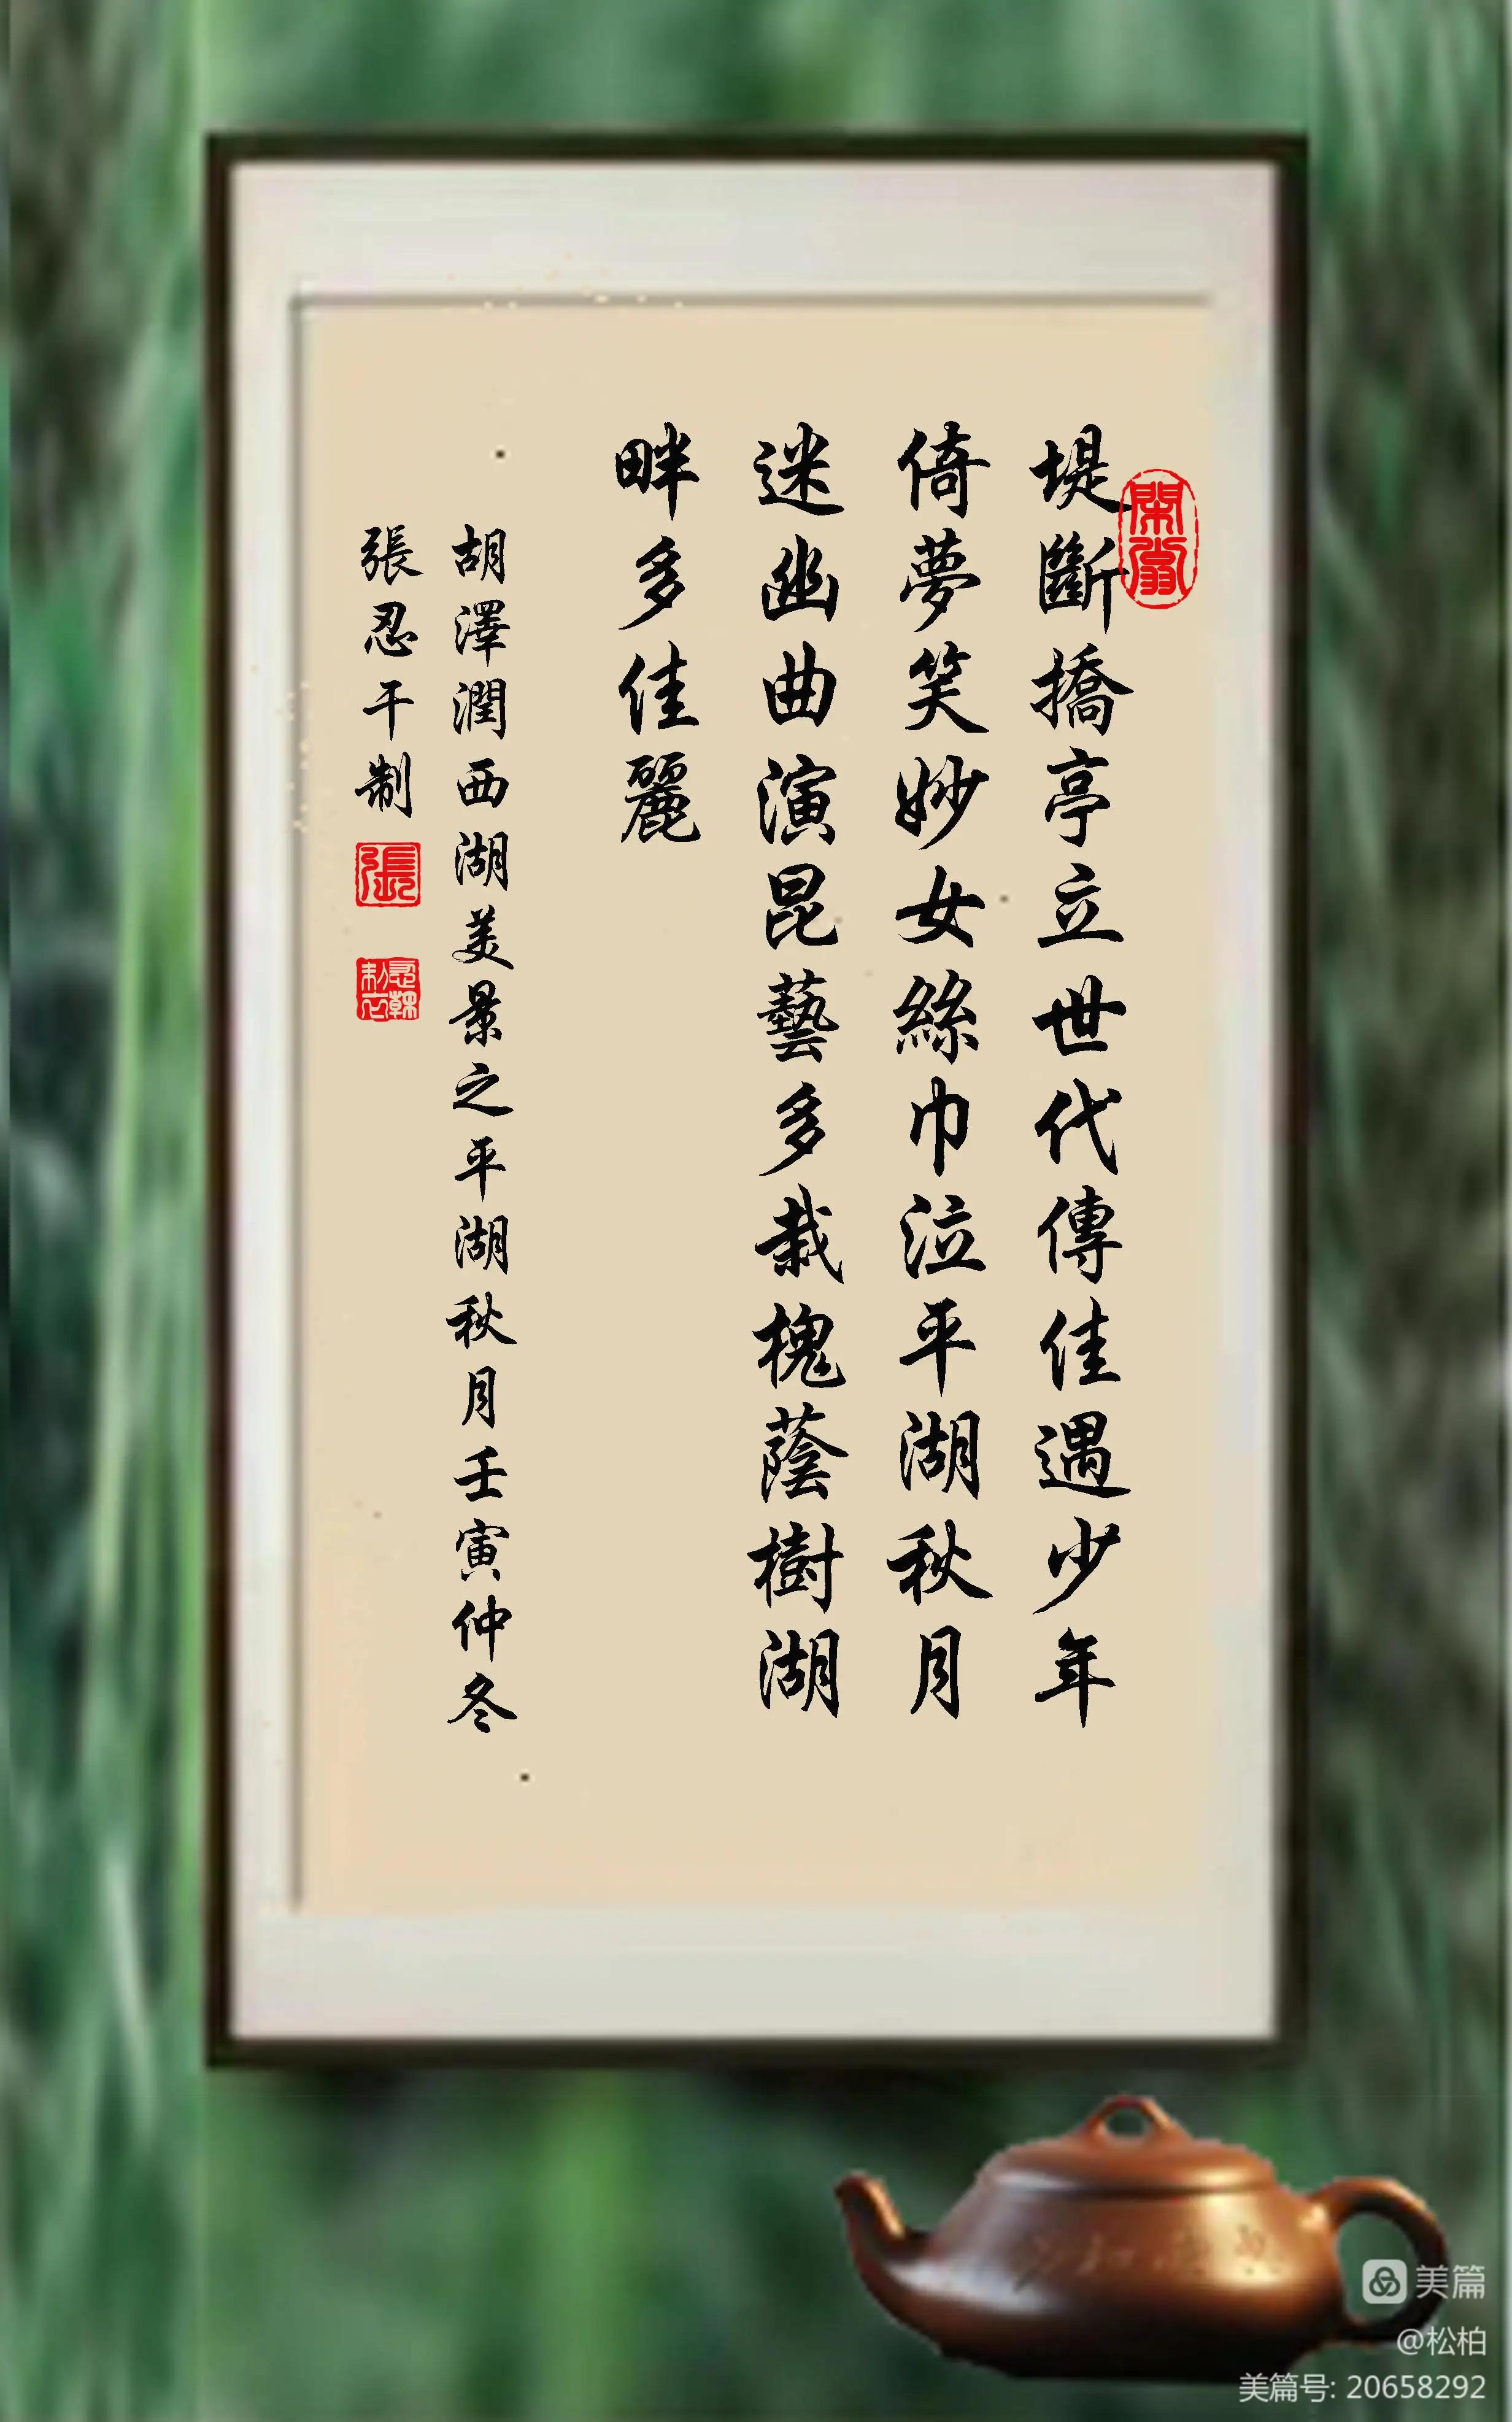 堤斷撟亭立世代傳佳遇少年
倚夢笑妙女絲巾泣平湖秋月
迷幽曲演昆藝多栽槐蔭樹湖
畔多佳麗
胡澤潤西湖美景之平湖秋月壬寅仲冬
張忍干制
張
美篇
@松柏
美篇号: 20658292